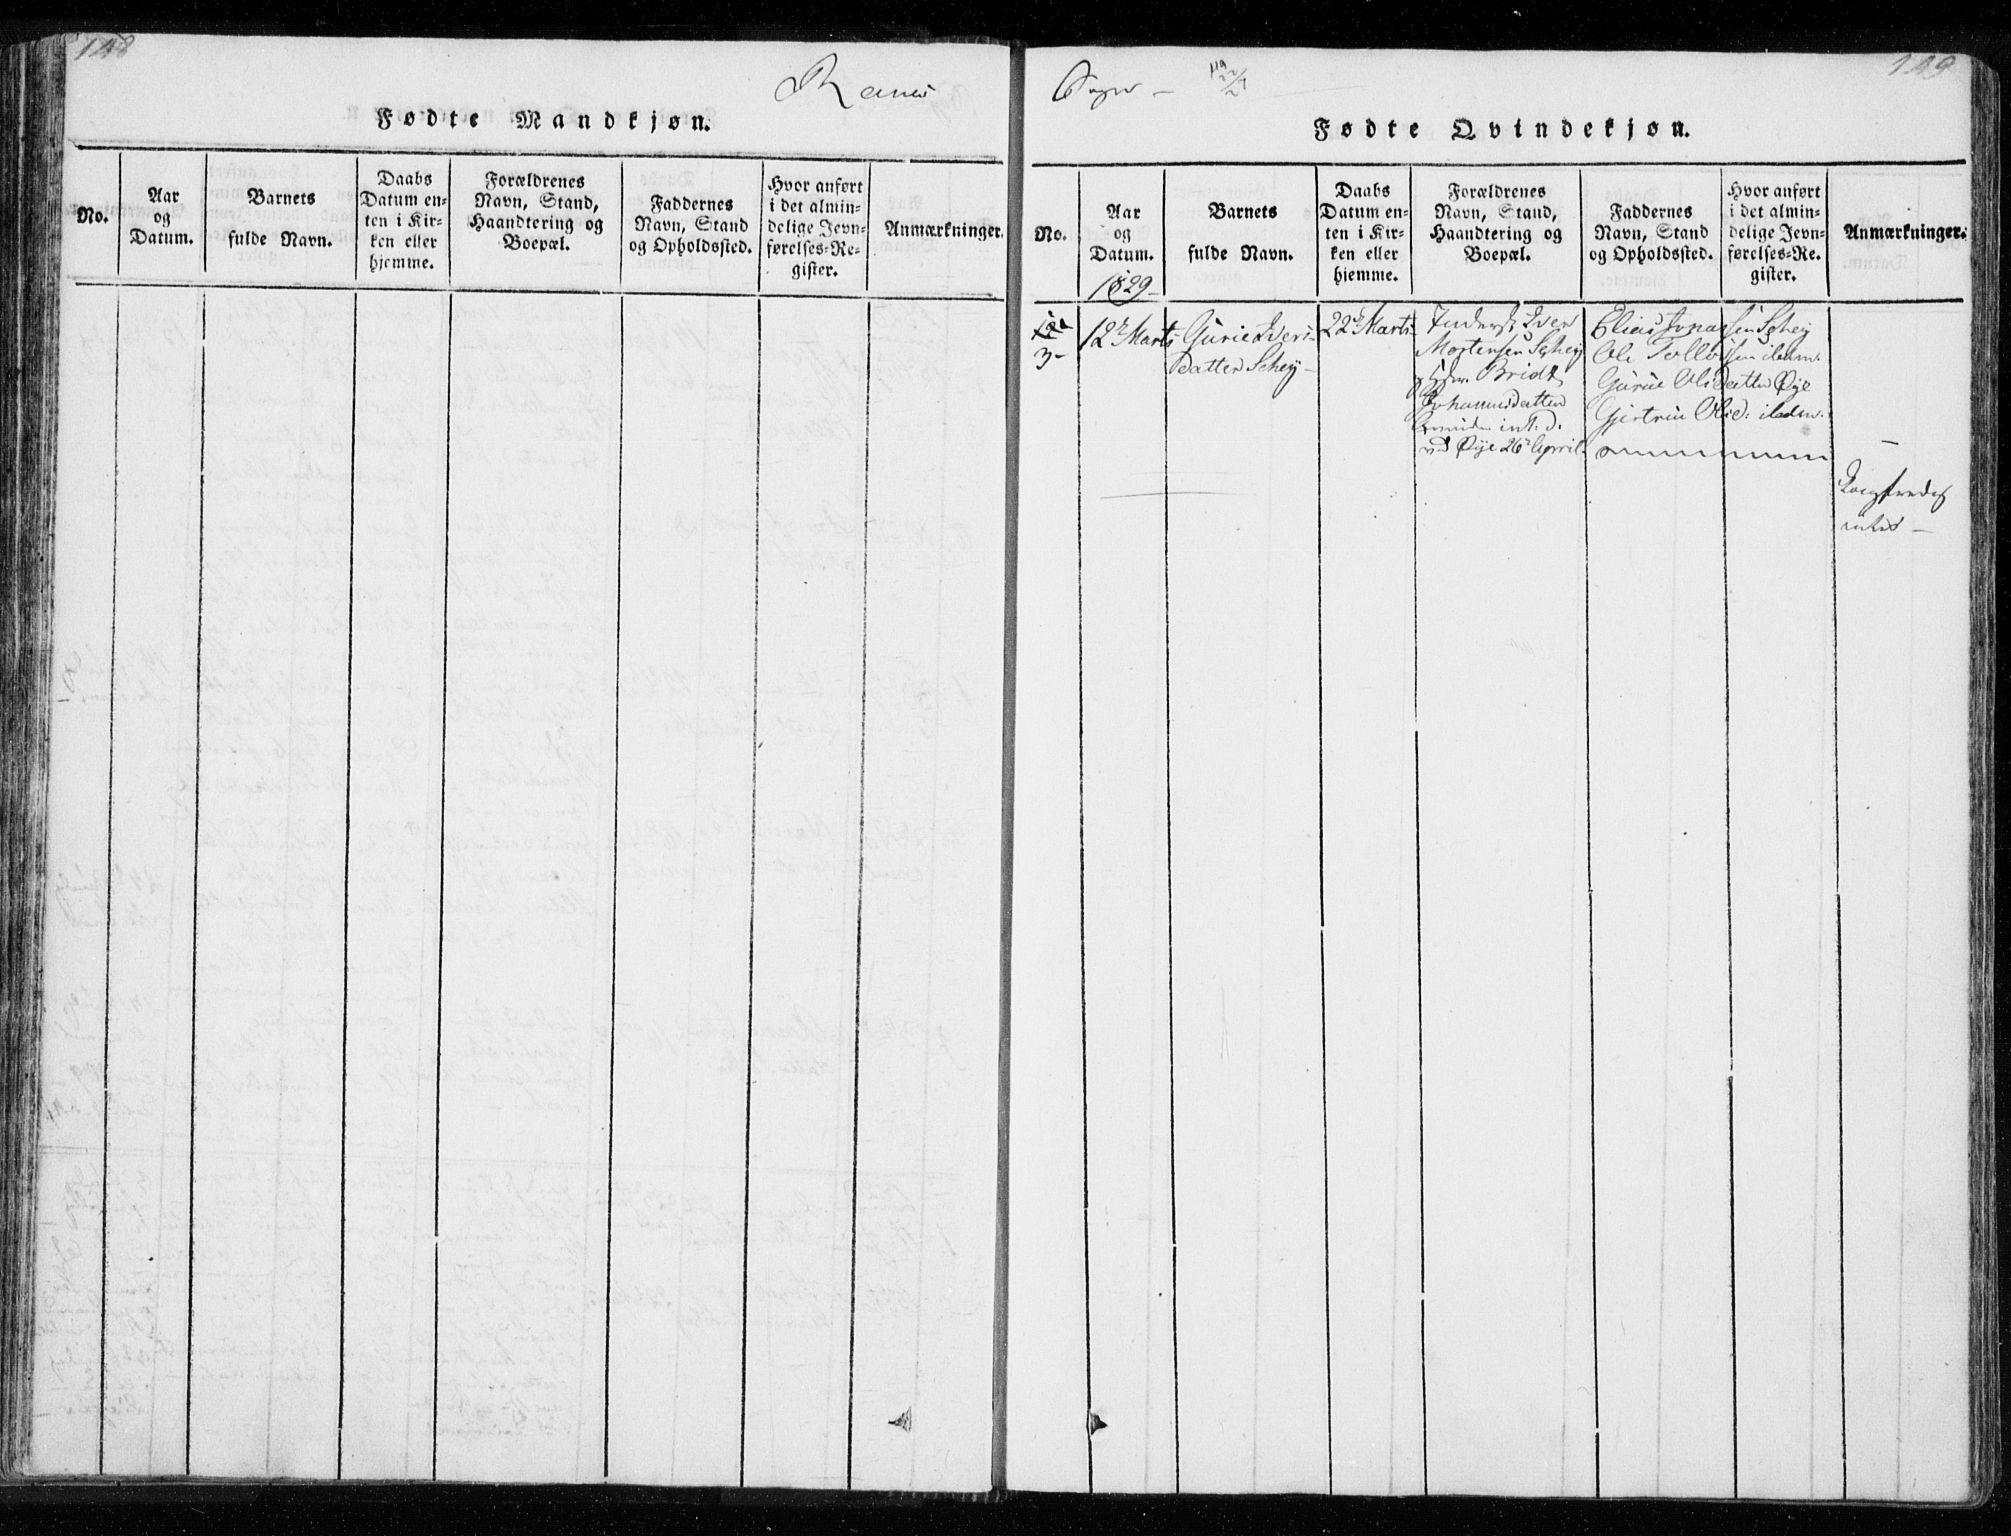 148
Ranes
Fødte Mandkjøn.
No.
Aar
og
Datum.
Barnets
fulde Navn.
Daabs
Datum en-
ten i Kir-
ken eller
hjemme.
Forældrenes
Navn, Stand,
Haandtering og
Boepæl.
Faddernes
Navn, Stand
og Opholdssted.
Hvor anført
i det almin-
delige Jevn-
førelses-Re-
gister.
Anmærkninger.
149
Sogn –
Fødte Qvindekjøn.
No.
Aar
og
Datum.
Barnets
fulde Navn.
Daabs
Datum en-
ten i Kir-
ken eller
hjemme.
Forældrenes
Navn, Stand,
Haandtering og
Boepæl.
Faddernes
Navn, Stand
og Opholdssted.
Hvor anført
i det almin-
delige Jevn-
førelses-Re-
gister.
Anmærkninger.
1829–
3–
12te Marts
Gurie Ivers-
datter Schey –
22de Marts
Inderst Iver
Mortensen Schey
Johannesdatter
Øye 26de April.
Elias Jonassen Schey
Ole Tollefsen ibidm.
Gurue Olsdatter Øye
Gjertrue Olsd: ibidm.